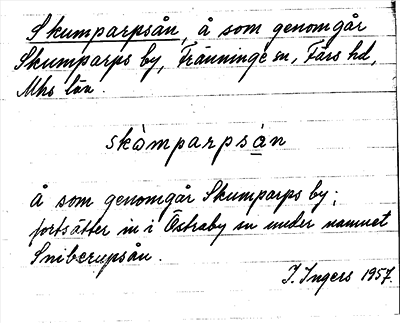 Skumparpsån, å som genomgår
Skumparps by, Tranninge sn, Färs hd,
Mhs län.
skòmparpsàn
Å som genomgår Skumparps by;
fortsätter in i Östraby sn under namnet
Sniberupsån.
I. Ingers 1957.